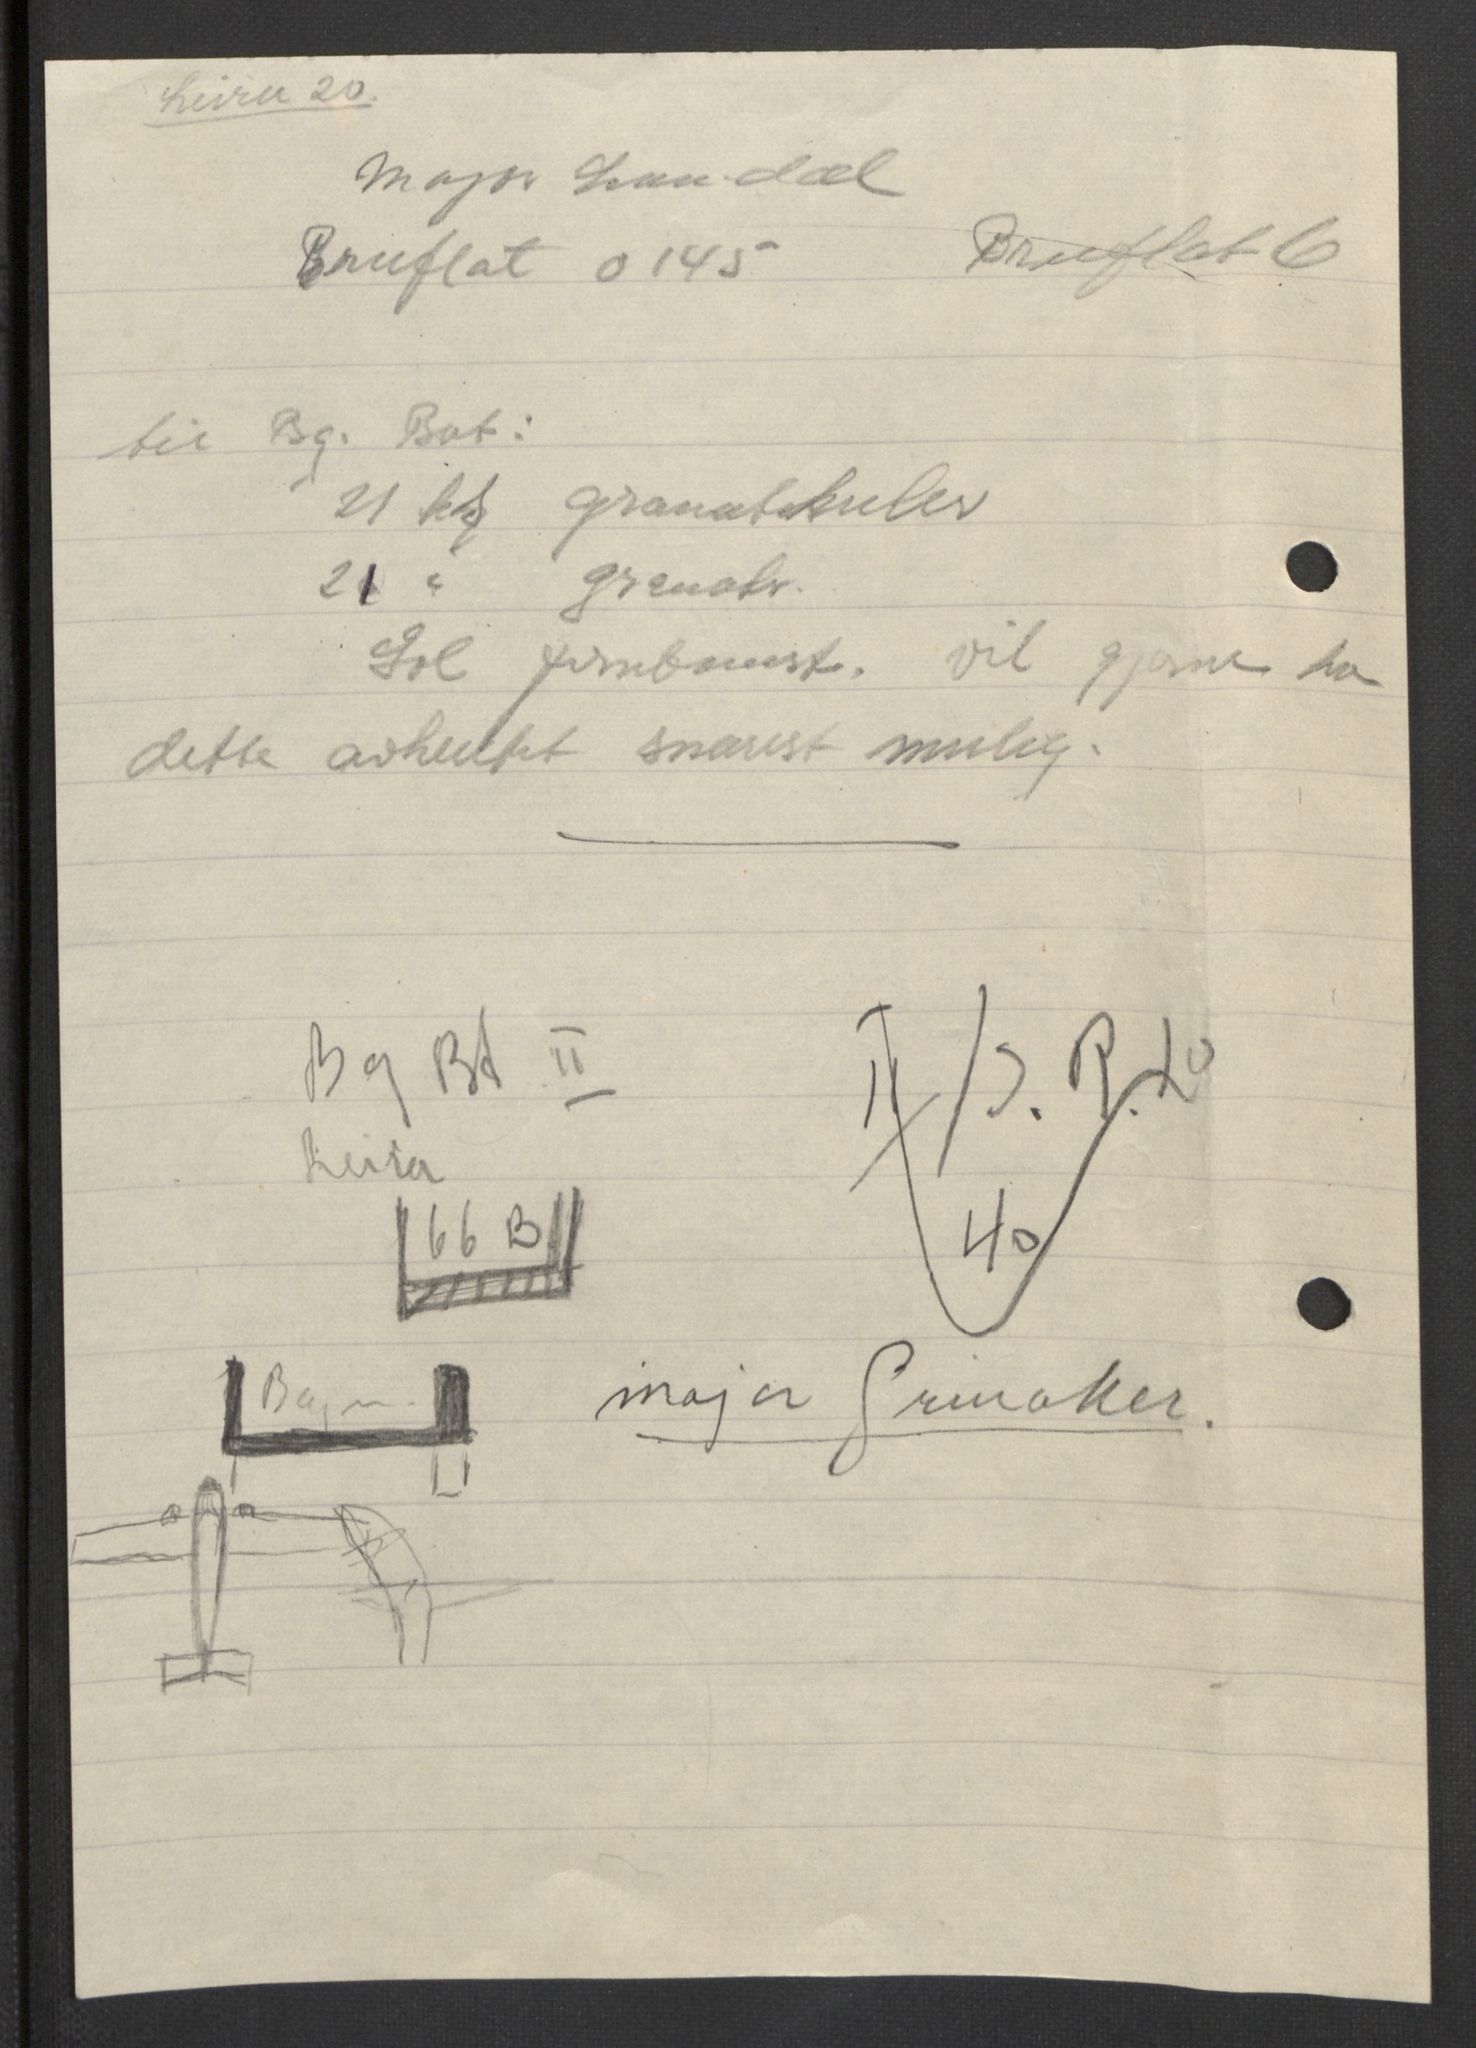 Leira 20.
Major Laudal
Bruflat 0145 Bruflat 6
til Bg. Bat:
21 kg granatkuler
21 " granatr.
Gol jernbanest. vil gjerne ha
dette avhentet snarest mulig.
Bg Bt II
Leira
66 B
II/J.R. 20
40
Bagn.
major Grinaker.